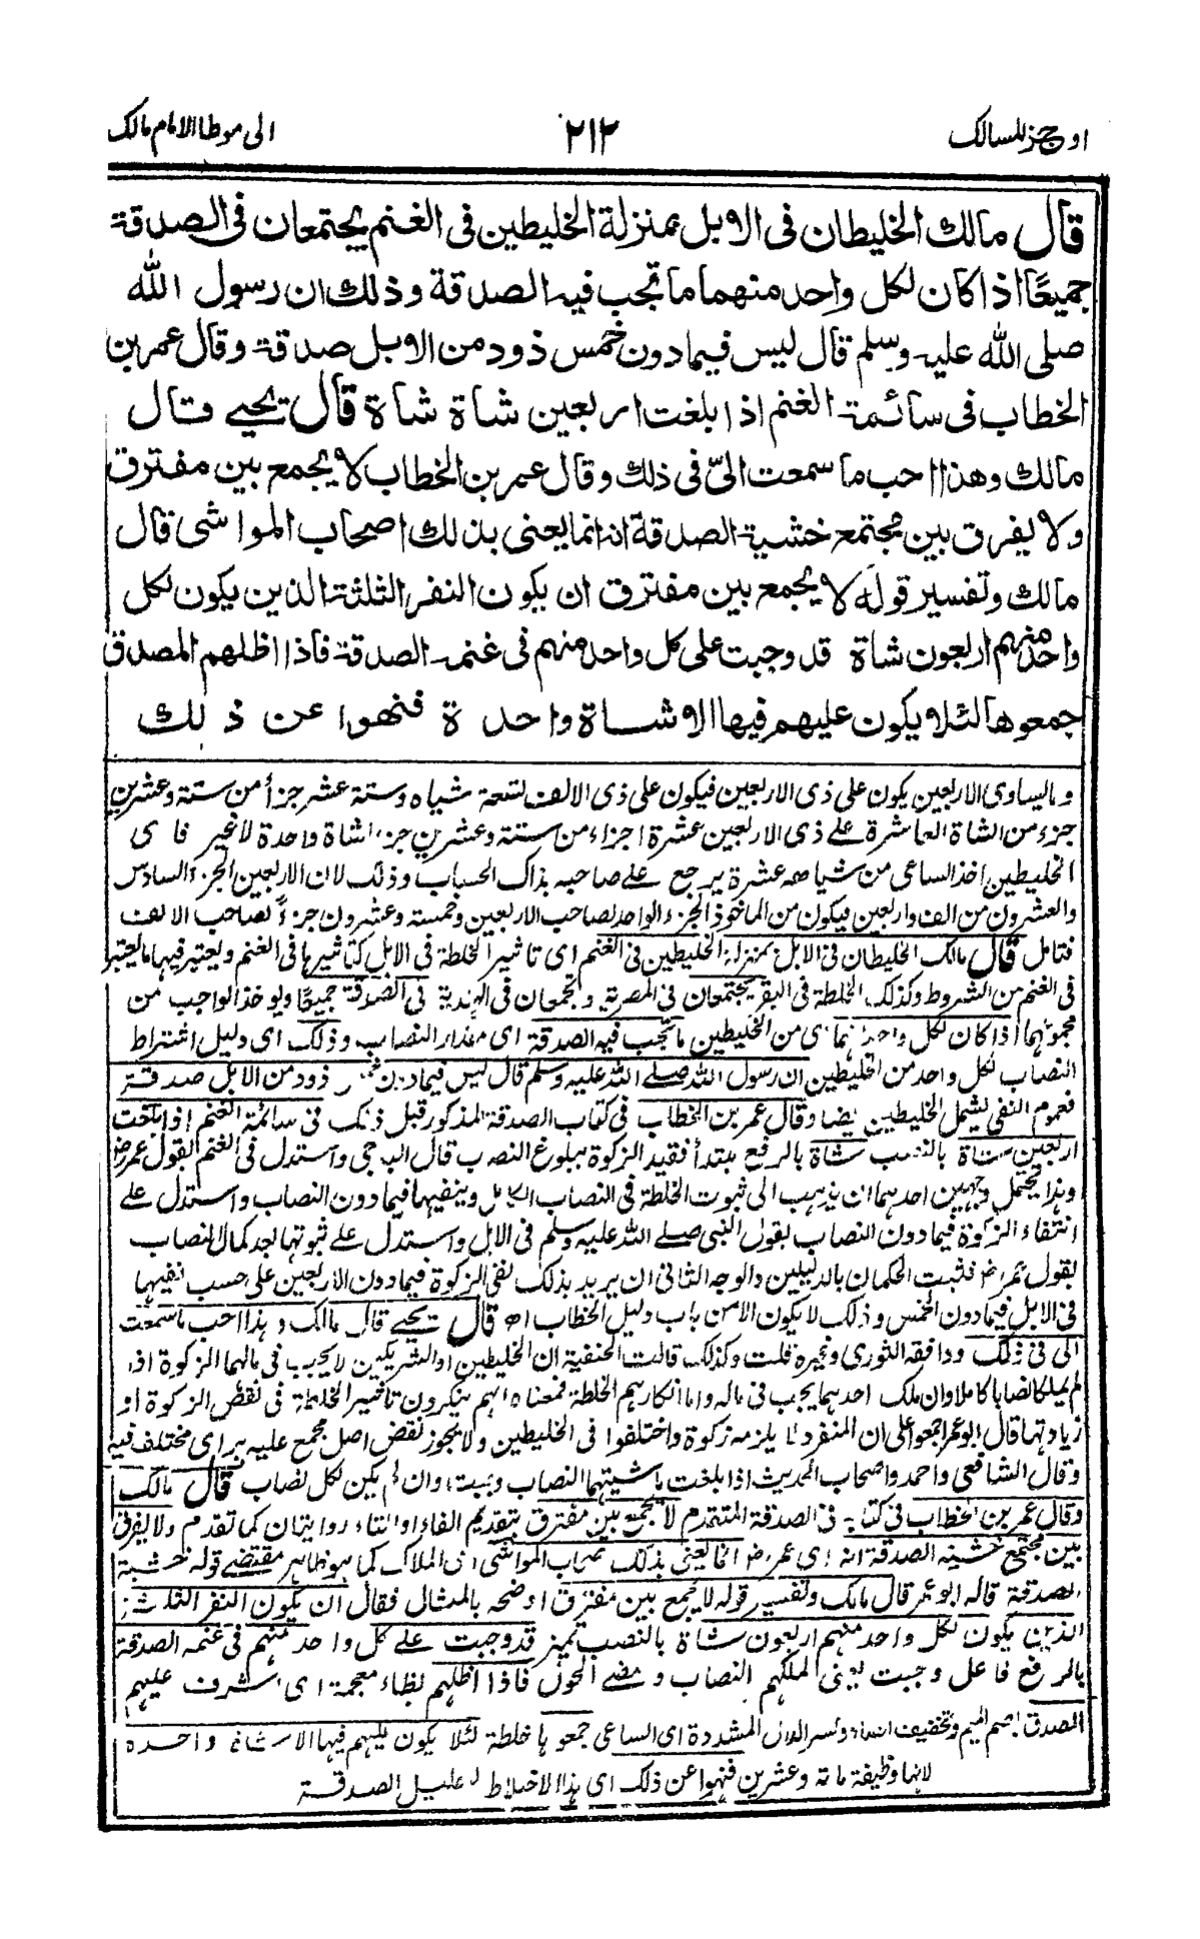 اوجز المسالك ٢١٢ الى موطا الامام مالك
قال مالك الخليطان فى الابل بمنزلة الخليطين فى الغنم يجتمعان فى الصدقة
جميعًا اذا كان لكل واحد منهما ما تجب فيه الصدقة وذلك ان رسول الله
صلى الله عليه وسلم قال ليس فيما دون خمس ذود من الابل صدقة وقال عمر بن
الخطاب فى سائمة الغنم اذا بلغت اربعين شاة شاة قال يحيى قال
مالك وهذا احب ما سمعت الىّ فى ذلك وقال عمر بن الخطاب لا يجمع بين مفترق
ولا يفرق بين مجتمع خشية الصدقة انه انما يعنى بذلك اصحاب المواشى قال
مالك وتفسير قوله لا يجمع بين مفترق ان يكون النفر الثلثة الذين يكون لكل
واحد منهم اربعون شاة قد وجبت على كل واحد منهم فى غنمه الصدقة فاذا اظلهم المصدق
جمعوها لئلا يكون عليهم فيها الا شاة واحدة فنهوا عن ذلك
وما يساوى الاربعين يكون على ذى الاربعين فيكون على ذى الالف تسعة شياه وستة عشر جزأ من ستة وعشرين
جزء من الشاة العاشرة على ذى الاربعين عشرة اجزاء من ستة وعشرين جزء شاة واحدة لا غير فاى
الخليطين اخذ الساعى من شياهه عشرة يرجع على صاحبه بذاك الحساب وذلك لان الاربعين الجزء السادس
والعشرون من الف واربعين فيكون من الماخوذ الجزء الواحد لصاحب الاربعين وخمسة وعشرون جزءً لصاحب الالف
فتامل قال مالك الخليطان فى الابل بمنزلة الخليطين فى الغنم اى تاثير الخلطة فى الابل كتاثيرها فى الغنم ويعتبر فيها ما يعتبر
فى الغنم من الشروط وكذلك الخلطة فى البقر يجتمعان فى المصرية ويجمعان فى الهندية فى الصدقة جميعًا ويوخذ الواجب من
مجموعهما اذا كان لكل واحد منهما اى من الخليطين ما تجب فيه الصدقة اى مقدار النصاب وذلك اى دليل اشتراط
النصاب لكل واحد من الخليطين ان رسول الله صلى الله عليه وسلم قال ليس فيما دون خمس ذود من الابل صدقة
فعموم النفى يشمل الخليطين ايضا وقال عمر بن الخطاب فى كتاب الصدقة المذكور قبل ذلك فى سائمة الغنم اذا بلغت
اربعين شاة بالنصب شاة بالرفع مبتدأ فقيد الزكوة ببلوغ النصاب قال الباجى واستدل فى الغنم القول عمر رض
وهذا يحتمل وجهين احدهما ان يذهب الى ثبوت الخلطة فى النصاب الكامل وينفيها فيما دون النصاب واستدل على
انتفاء الزكوة فيما دون النصاب بقول النبى صلى الله عليه وسلم فى الابل واستدل على ثبوتها بعد كمال النصاب
بقول عمر رض فثبت الحكمان بالدليلين والوجه الثانى ان يريد بذلك نفى الزكوة فيما دون الاربعين على حسب نفيها
فى الابل فيما دون الخمس وذلك لا يكون الا من باب دليل الخطاب اه قال يحيى قال مالك وهذا احب ما سمعت
الى فى ذلك ووافقه الثورى وغيره قلت وكذلك قالت الحنفية ان الخليطين او الشريكين لا يجب فى مالهما الزكوة اذا
لم يملكا نصابا كاملا وان ملك احدهما يجب فى ماله واما انكارهم الخلطة فمعناه انهم ينكرون تاثير الخلطة فى نقص الزكوة او
زيادتها قال ابو عمر اجمعوا على ان المنفرد لا يلزمه زكوة واختلفوا فى الخليطين ولا يجوز نقض اصل مجمع عليه براى مختلف فيه
وقال الشافعى واحمد واصحاب الحديث اذا بلغت ماشيتهما النصاب وجبت وان لم يكن لكل نصاب قال مالك
وقال عمر بن الخطاب فى كتابه فى الصدقة المتقدم لا يجمع بين مفترق بتقديم الفاء او التاء روايتان كما تقدم ولا يفرق
بين مجتمع خشية الصدقة انه اى عمر رض انما يعنى بذلك اصحاب المواشى اى الملاك كما هو ظاهر مقتضى قوله خشية
الصدقة قاله ابو عمر قال مالك وتفسير قوله لا يجمع بين مفترق اوضحه بالمثال فقال ان يكون النفر الثلاثة
الذين يكون لكل واحد منهم اربعون شاة بالنصب تميز قد وجبت على كل واحد منهم فى غنمه الصدقة
بالرفع فاعل وجبت يعنى لملكهم النصاب ومضى الحول فاذا اظلهم بظاء معجمة اى اشرف عليهم
المصدق بضم الميم وتخفيف الصاد وكسر الدال المشددة اى الساعى جمعوها خلطة لئلا يكون عليهم فيها الا شاة واحدة
لانها وظيفة مائة وعشرين فنهوا عن ذلك اى هذا الاختلاط لتقليل الصدقة